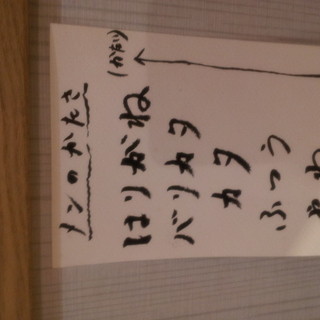 メンのかたさ
はりがね (かたい)
バリカタ
カタ
ふつう